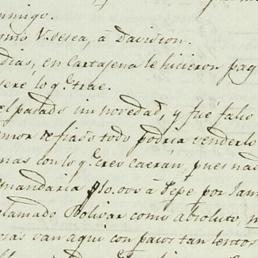 nmigo.
onio V. desea, á Davidson.
dias, en Cartagena le hicieron pag
ere lo qe. trae.
el pasado sin novedad, y fue falso
mor refiado todo podria venderlo
mas con lo qe. creo caeran, pues nad
mandaria $10.000 á Pepe por Jam
clamado Bolivar como absoluto
osas van aqui con pasos tan lentos